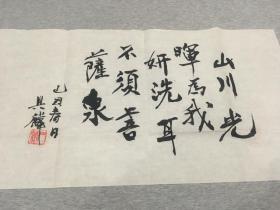 山川光
暉為我
妍洗耳
不須菩
薩泉
己丑春日
具